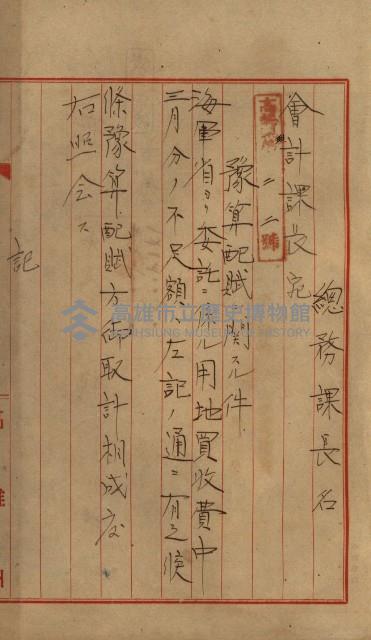 總務課長名
會計課長宛
高 二二號
豫算配賦ニ關スル件
海軍省ヨリ委託ニ係ル用地買收費中
三月分ノ不足額ハ左記ノ通ニ有之候
條豫算配賦方御取計相成度
右照会ス
記
高雄州
高雄市立歷史博物館
KAOHSIUNG MUSEUM OF HISTORY